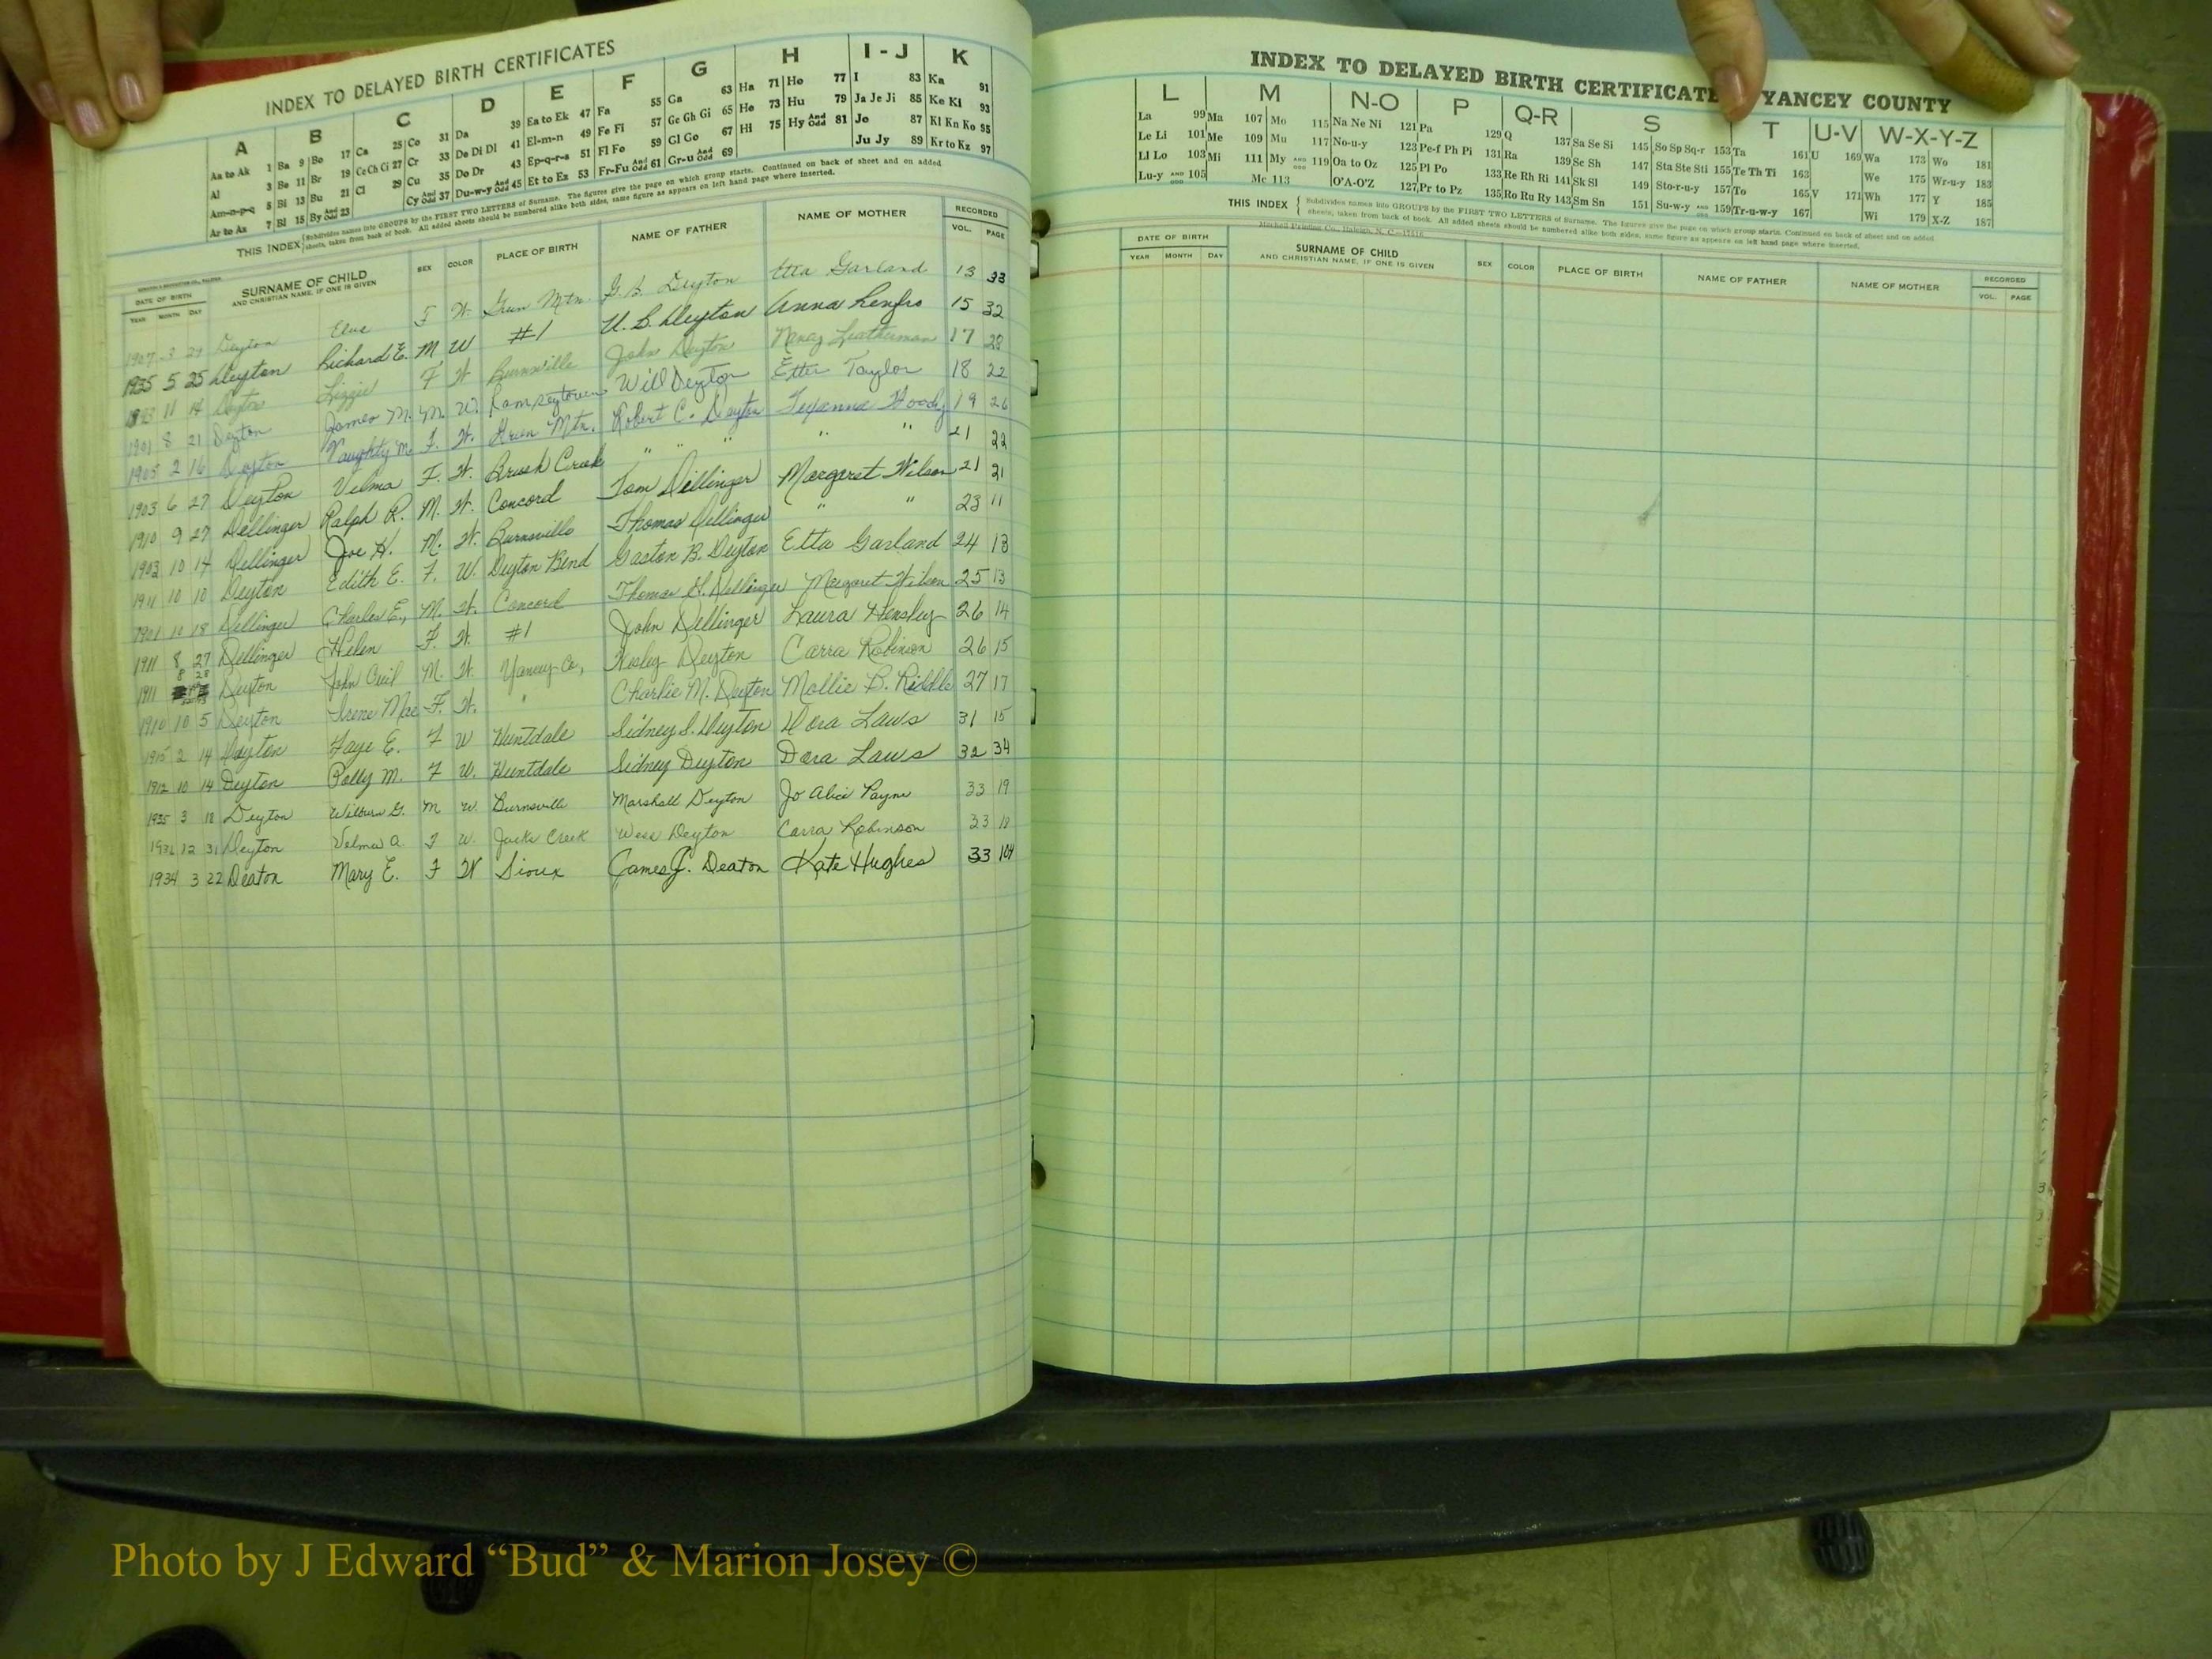 INDEX TO DELAYED BIRTH CERTIFICATES
A B C D E F G H I - J K
Aa to Ak 1 Ba 9 Bo 17 Ca 25 Co 31 Da 39 Ea to Ek 47 Fa 55 Ga 63 Ha 71 Ho 77 I 83 Ka 91
Al 3 Be 11 Br 19 Ce Ch Ci 27 Cr 33 De Di Dl 41 El-m-n 49 Fe Fi 57 Ge Gh Gi 65 He 73 Hu 79 Ja Je Ji 85 Ke Ki 93
Am-n-p-q 5 Bi 13 Bu 21 Cl 29 Cu 35 Do Dr 43 Ep-q-r-s 51 Fl Fo 59 Gl Go 67 Hi 75 Hy And Odd 81 Jo 87 Kl Kn Ko 95
Ar to Ax 7 Bl 15 By And Odd 23 Cy And Odd 37 Du-w-y And Odd 45 Et to Ez 53 Fr-Fu And Odd 61 Gr-u And Odd 69 Ju Jy 89 Kr to Kz 97
THIS INDEX Subdivides names into GROUPS by the FIRST TWO LETTERS of Surname. The figures give the page on which group starts. Continued on back of sheet and on added
sheets, taken from back of book. All added sheets should be numbered alike both sides, same figure as appears on left hand page where inserted.
DATE OF BIRTH SURNAME OF CHILD SEX COLOR PLACE OF BIRTH NAME OF FATHER NAME OF MOTHER RECORDED
YEAR MONTH DAY AND CHRISTIAN NAME, IF ONE IS GIVEN VOL. PAGE
1907 3 29 Deyton F W. Etta Garland 13 33
1935 5 25 Deyton Richard E. M W #1 U. B. Deyton Anna Renfro 15 32
11 14 Deyton Lizzie F W Burnsville John Deyton Nancy Leatherman 17 28
1901 8 21 Deyton James M. M. W. Ramseytown Will Deyton Etter Taylor 18 22
1905 2 16 Deyton F. W. Green Mtn. Robert C. Deyton 19 26
1903 6 27 Deyton Velma F. W. Brush Creek " " " " " 21 22
1910 9 27 Dellinger Ralph R. M. W. Concord Tom Dellinger Margaret Wilson 21 21
1903 10 14 Dellinger Joe H. M. W. Burnsville Thomas Dellinger " " 23 11
1911 10 10 Deyton Edith E. F. W. Deyton Bend Gaston B. Deyton Etta Garland 24 13
1901 10 18 Dellinger Charles E., M. W. Concord Thomas Dellinger Margaret Wilson 25 13
1911 8 27 Dellinger Helen F. W. #1 John Dellinger Laura Hensley 26 14
1911 8 28 Deyton John M. W. Yancey Co, Wesley Deyton Carra Robinson 26 15
1910 10 5 Deyton Irene Mae F. W. " Charlie M. Deyton Mollie B. Riddle 27 17
1915 2 14 Deyton Faye E. F W Huntdale Sidney S. Deyton Dora Laws 31 15
1912 10 14 Deyton Polly M. F W. Huntdale Sidney Deyton Dora Laws 32 34
1935 3 18 Deyton Wilburn G. M W. Burnsville Marshall Deyton Jo Alice Payne 33 19
12 31 Deyton Velma A. F W. Jacks Creek Wess Deyton Carra Robinson 33 18
1934 3 22 Deaton Mary E. F W Sioux James J. Deaton Kate Hughes 33 104
INDEX TO DELAYED BIRTH CERTIFICATE YANCEY COUNTY
L M N-O P Q-R S T U-V W-X-Y-Z
La 99 Ma 107 Mo 115 Na Ne Ni 121 Pa 129 Q 137 Sa Se Si 145 So Sp Sq-r 153 Ta 161 U 169 Wa 173 Wo 181
Le Li 101 Me 109 Mu 117 No-u-y 123 Pe-f Ph Pi 131 Ra 139 Sc Sh 147 Sta Ste Sti 155 Te Th Ti 163 We 175 Wr-u-y 183
Ll Lo 103 Mi 111 My AND ODD 119 Oa to Oz 125 Pl Po 133 Re Rh Ri 141 Sk Sl 149 Sto-r-u-y 157 To 165 V 171 Wh 177 Y 185
Lu-y AND ODD 105 Mc 113 O'A-O'Z 127 Pr to Pz 135 Ro Ru Ry 143 Sm Sn 151 Su-w-y AND ODD 159 Tr-u-w-y 167 Wi 179 X-Z 187
THIS INDEX Subdivides names into GROUPS by the FIRST TWO LETTERS of Surname. The figures give the page on which group starts. Continued on back of sheet and on added
sheets, taken from back of book. All added sheets should be numbered alike both sides, same figure as appears on left hand page where inserted.
Mitchell Printing Co., Raleigh, N. C.
DATE OF BIRTH SURNAME OF CHILD SEX COLOR PLACE OF BIRTH NAME OF FATHER NAME OF MOTHER RECORDED
YEAR MONTH DAY AND CHRISTIAN NAME, IF ONE IS GIVEN VOL. PAGE
Photo by J Edward “Bud” & Marion Josey ©